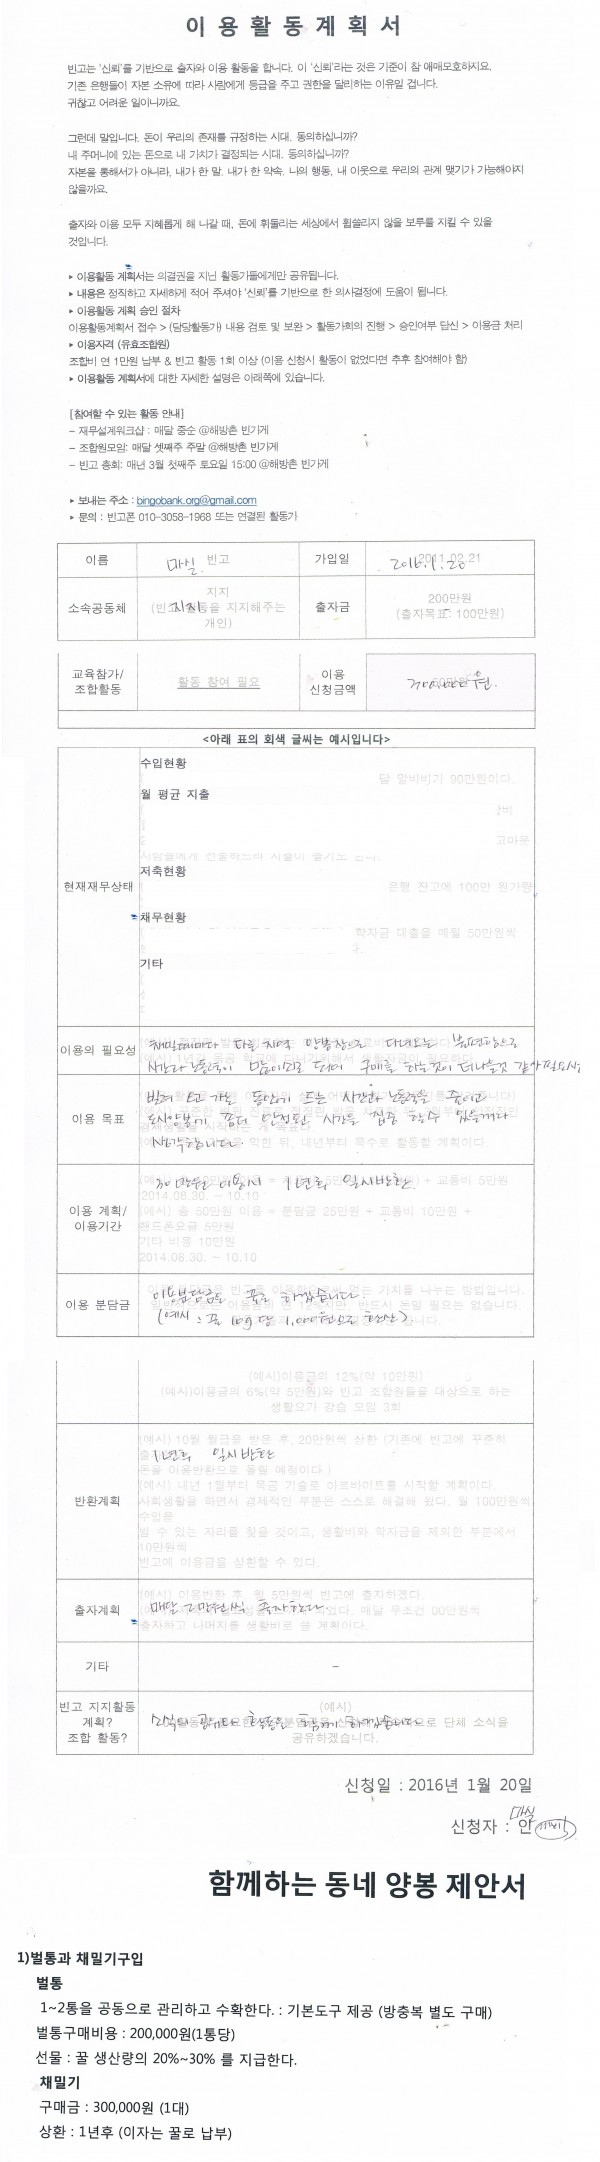 이 용 활 동 계 획 서
빈고는 '신뢰'를 기반으로 출자와 이용 활동을 합니다. 이 '신뢰'라는 것은 기준이 참 애매모호하지요.
기존 은행들이 자본 소유에 따라 사람에게 등급을 주고 권한을 달리하는 이유일 겁니다.
귀찮고 어려운 일이니까요.
그런데 말입니다. 돈이 우리의 존재를 규정하는 시대. 동의하십니까?
내 주머니에 있는 돈으로 내 가치가 결정되는 시대. 동의하십니까?
자본을 통해서가 아니라, 내가 한 말. 내가 한 약속. 나의 행동, 내 이웃으로 우리의 관계 맺기가 가능해야지
않을까요.
출자와 이용 모두 지혜롭게 해 나갈 때, 돈에 휘둘리는 세상에서 휩쓸리지 않을 보루를 지킬 수 있을
것입니다.
▸ 이용활동 계획서는 의결권을 지닌 활동가들에게만 공유됩니다.
▸ 내용은 정직하고 자세하게 적어 주셔야 '신뢰'를 기반으로 한 의사결정에 도움이 됩니다.
▸ 이용활동 계획 승인 절차
이용활동계획서 접수 > (담당활동가) 내용 검토 및 보완 > 활동가회의 진행 > 승인여부 답신 > 이용금 처리
▸ 이용자격 (유효조합원)
조합비 연 1만원 납부 & 빈고 활동 1회 이상 (이용 신청시 활동이 없었다면 추후 참여해야 함)
▸ 이용활동 계획서에 대한 자세한 설명은 아래쪽에 있습니다.
[참여할 수 있는 활동 안내]
- 재무설계워크샵 : 매달 중순 @해방촌 빈가게
- 조합원모임: 매달 셋째주 주말 @해방촌 빈가게
- 빈고 총회: 매년 3월 첫째주 토요일 15:00 @해방촌 빈가게
▸ 보내는 주소 : bingobank.org@gmail.com
▸ 문의 : 빈고폰 010-3058-1968 또는 연결된 활동가
이름 마실 빈고 가입일 2011.02.21 2016.1.20
소속공동체 지지 (빈고 활동을 지지해주는 개인) 지지 출자금 200만원 (출자목표: 100만원)
교육참가/조합활동 활동 참여 필요 이용 신청금액 300,000원.
<아래 표의 회색 글씨는 예시입니다>
현재재무상태
수입현황
달 알바비기 90만원이다.
월 평균 지출
저축현황
은행 잔고에 100만 원가량
채무현황
학자금 대출을 매월 50만원씩
기타
이용의 필요성 채밀때마다 다른 지역 양봉장으로 다녀오는 불편함으로
시간과 노동력이 많이 되어 구매를 하는것이 더 나을것 같아 필요시
이용 목표 빌려 오고 가는 동안 드는 시간과 노동력을 줄이고
도시양봉기 좀더 안정된 시간을 집중 할수 있을거라
생각합니다.
이용 계획/이용기간 30만원 이용시 1년후 일시반환.
2014.08.30. - 10.10
(예시) 총 50만원 이용 = 분담금 25만원 + 교통비 10만원 +
핸드폰요금 5만원
기타 비용 10만원
2014.08.30. - 10.10
이용 분담금 이용분담금은 꿀로 하겠습니다.
(예시 : 꿀 10g 당 1,000원으로 환산)
(예시)이용금의 12%(약 10만원)
(예시)이용금의 6%(약 5만원)와 빈고 조합원들을 대상으로 하는
생활요가 강습 모임 3회
반환계획 1년후 일시반환
(예시) 10월 월급을 받은 후, 20만원씩 상환 (기존에 빈고에 꾸준히
돈을 이용반환으로 돌릴 예정이다.)
(예시) 내년 1월부터 목공 기술로 아르바이트를 시작할 계획이다.
사회생활을 하면서 경제적인 부분은 스스로 해결해 왔다. 월 100만원씩
수입을
벌 수 있는 자리를 찾을 것이고, 생활비와 학자금을 제외한 부분에서
10만원씩
빈고에 이용금을 상환할 수 있다.
출자계획 (예시) 이용반환 후, 월 5만원씩 빈고에 출자하겠다.
매달 2만원씩 출자한다.
출자하고 나머지를 생활비로 쓸 계획이다.
기타 -
빈고 지지활동 계획? 조합 활동? (예시)
소식의 공유와 활동을 함께 하겠습니다
공유하겠습니다.
신청일 : 2016년 1월 20일
마실
신청자 : 안
함께하는 동네 양봉 제안서
1)벌통과 채밀기구입
벌통
1~2통을 공동으로 관리하고 수확한다. : 기본도구 제공 (방충복 별도 구매)
벌통구매비용 : 200,000원(1통당)
선물 : 꿀 생산량의 20%~30% 를 지급한다.
채밀기
구매금 : 300,000원 (1대)
상환 : 1년후 (이자는 꿀로 납부)